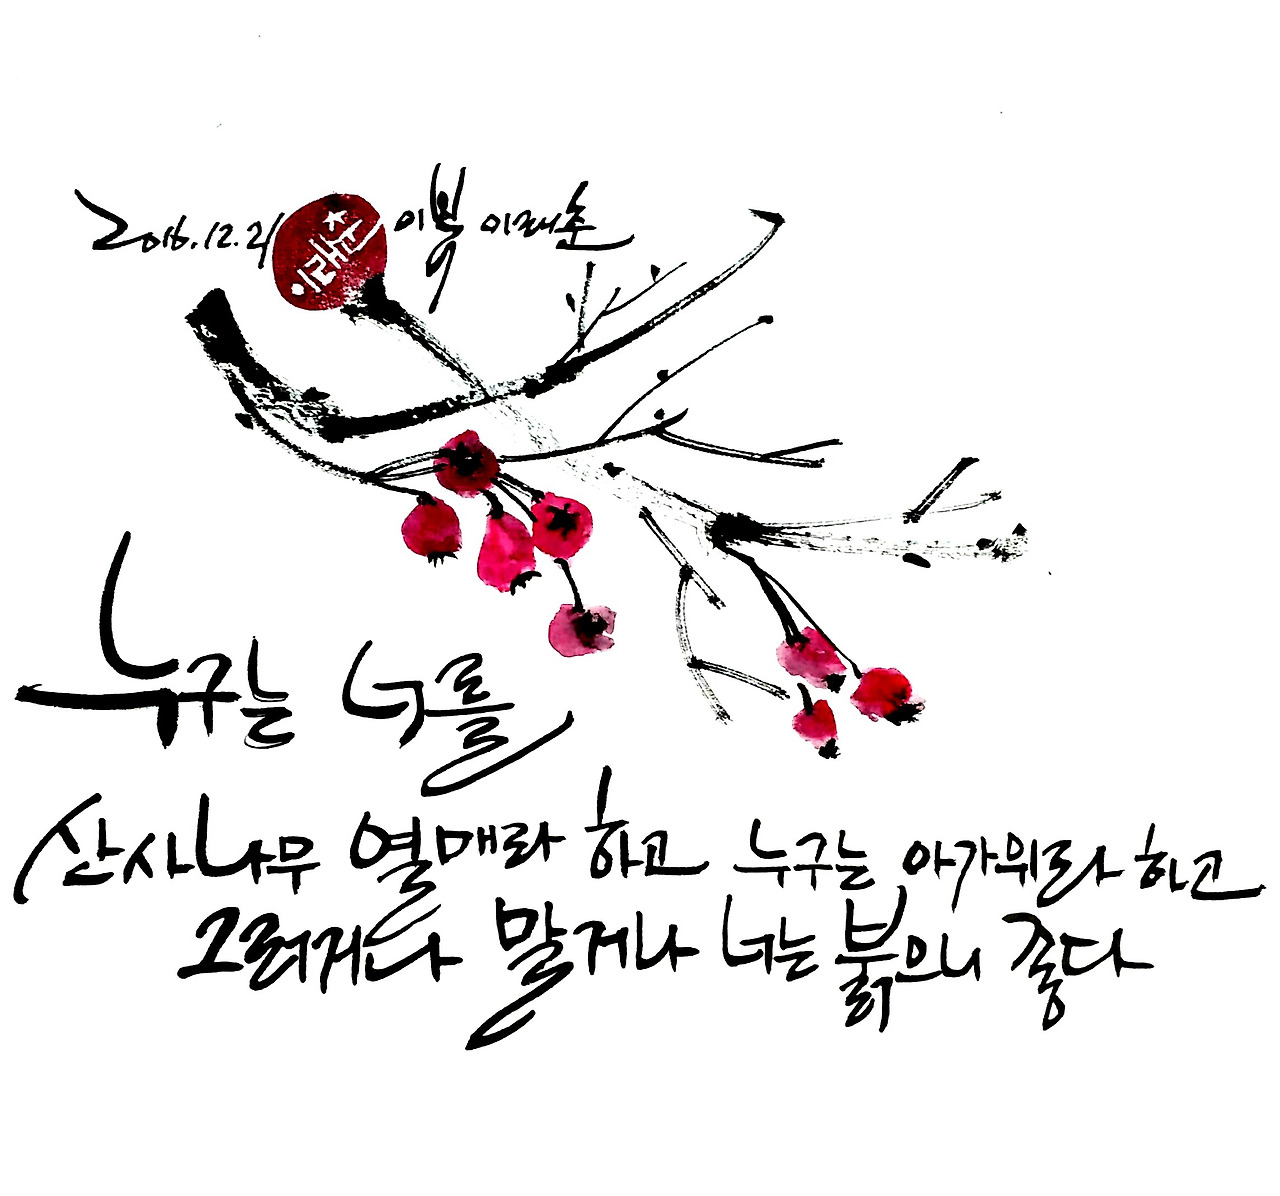 2016.12.21 이봉 이래춘
이래춘
누구는 너를
산사나무 열매라 하고 누구는 아가위라 하고
그러거나 말거나 너는 붉으니 좋다